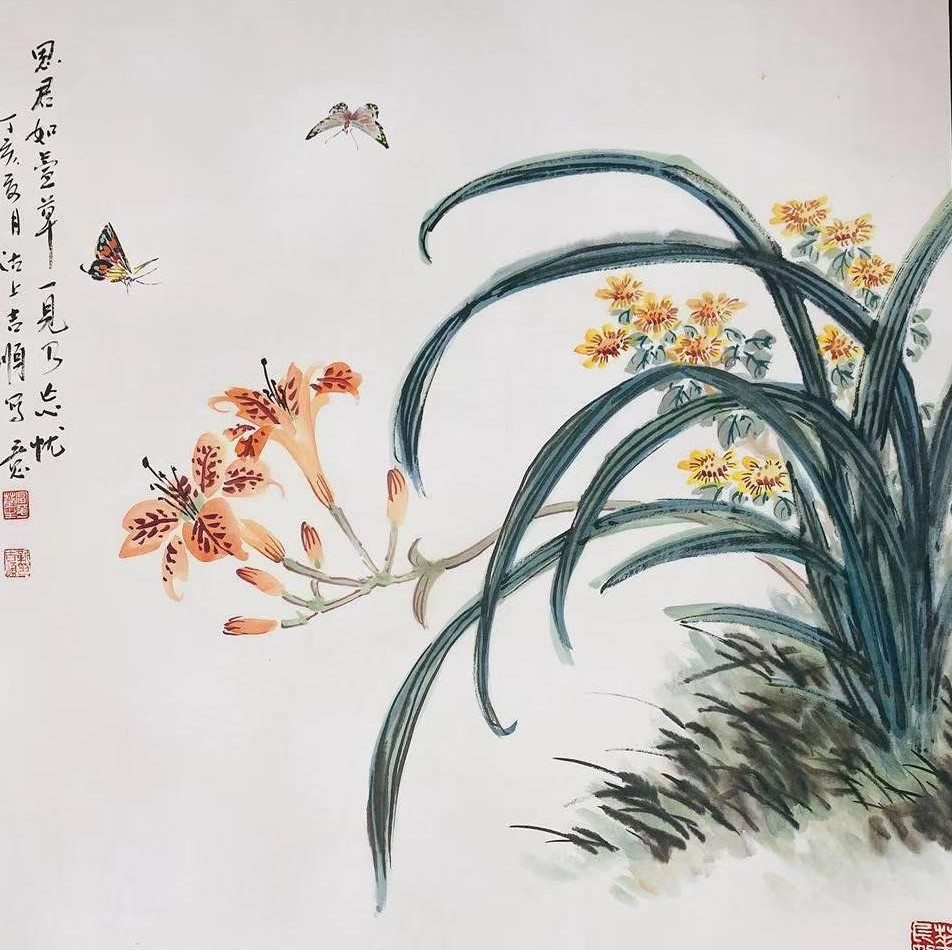 思君如萱草一見乃忘忧
丁亥夏月沽上吉順写意